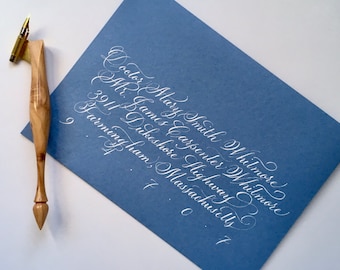 Doctor Mary Smith Whitmore
Mr. James Carpenter Whitmore
3911 Lakeshore Highway
Farmingham, Massachusetts
9 4 7 0 7